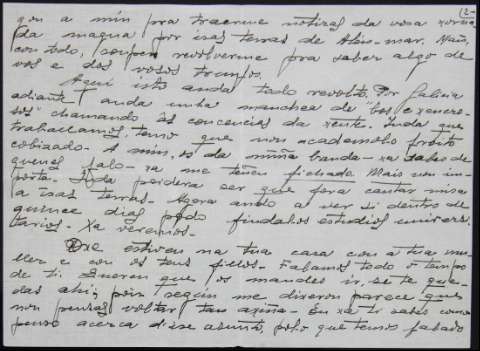 (2-
gou a min pra traerme notizas da vosa xorna
da magna por isas terras de Alén-mar. Mais,
con todo, soupen revolverme pra saber algo de
vos e dos vosos trunfos.
Aquí isto anda todo revolto. Por Galicia
adiante anda unha manchea de "bos e xenero-
sos" chamando ás concencias da xente. Inda que
traballamos, temo que non academolo froito
cobizado. A min, os da miña banda - xa sabes de
quenes falo - xa me teñen fichado. Mais non im-
porta. Inda perdera ser que fora cantar misa
a isas terras. Agora ando a ver si dentro de
quince dias podo findalos estudios univers
tarios. Xa veremos.
Onte estiven na tua casa con a tua mu-
ller e con os teus fillos. Falamos todo o tempo
de ti. Queren que os mandes ir, se te que-
das ahí; pois, segun me dixeron parece que
non pensas voltar tan axiña. Eu xa ti sabes como
penso acerca dise asunto, polo que temos falado